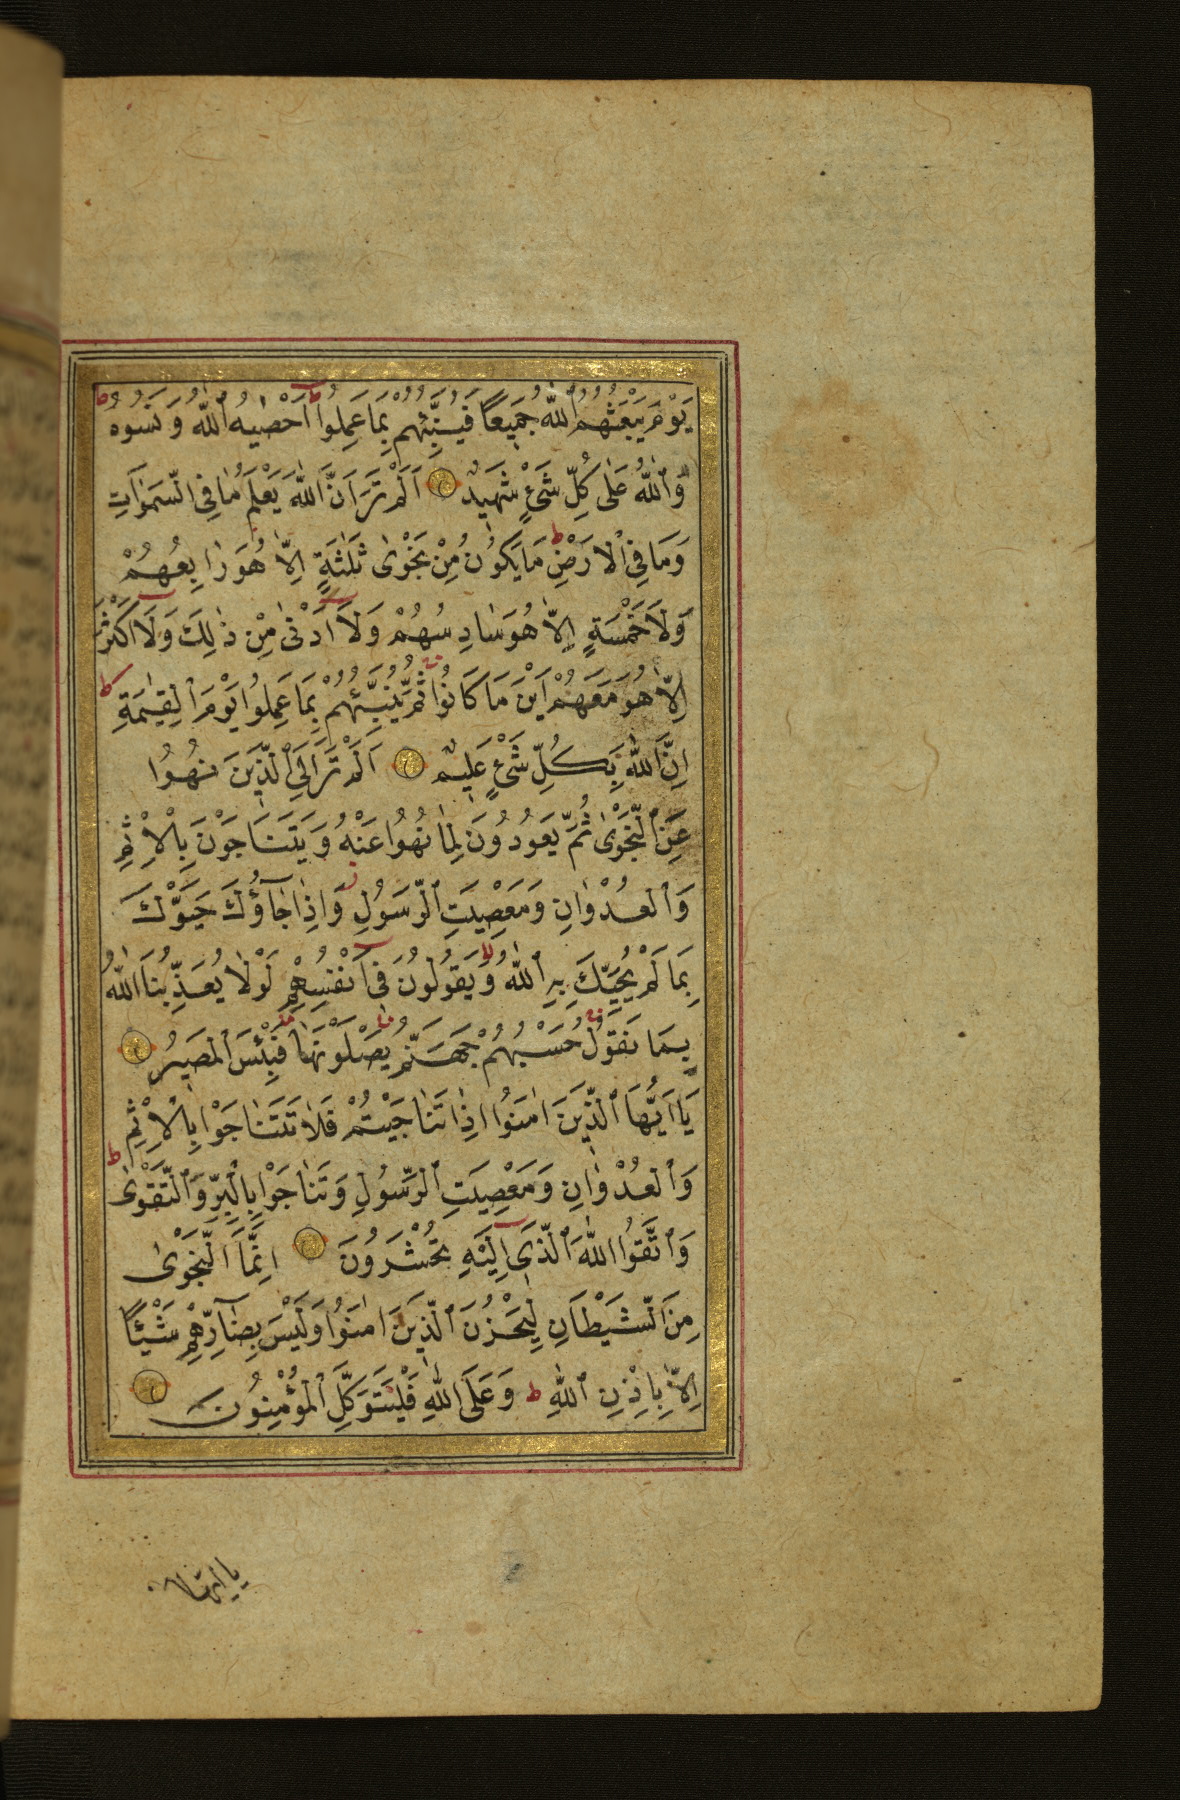 يَوْمَ يَبْعَثُهُمُ ٱللّٰهُ جَمِيعًا فَيُنَبِّئُهُمْ بِمَا عَمِلُوا اَحْصٰيهُ ٱللّٰهُ وَنَسُوهُ
وَٱللّٰهُ عَلٰى كُلِّ شَيْءٍ شَهِيدٌ اَلَمْ تَرَ اَنَّ ٱللّٰهَ يَعْلَمُ مَا فِي ٱلسَّمٰوَاتِ
وَمَا فِي ٱلْاَرْضِ مَا يَكُونُ مِنْ نَجْوٰى ثَلٰثَةٍ اِلَّا هُوَ رَابِعُهُمْ
وَلَا خَمْسَةٍ اِلَّا هُوَ سَادِسُهُمْ وَلَا اَدْنٰى مِنْ ذٰلِكَ وَلَا اَكْثَرَ
اِلَّا هُوَ مَعَهُمْ اَيْنَ مَا كَانُوا ثُمَّ يُنَبِّئُهُمْ بِمَا عَمِلُوا يَوْمَ ٱلْقِيٰمَةِ
اِنَّ ٱللّٰهَ بِكُلِّ شَيْءٍ عَلِيمٌ اَلَمْ تَرَ اِلَى ٱلَّذِينَ نُهُوا
عَنِ ٱلنَّجْوٰى ثُمَّ يَعُودُونَ لِمَا نُهُوا عَنْهُ وَيَتَنَاجَوْنَ بِٱلْاِثْمِ
وَٱلْعُدْوَانِ وَمَعْصِيَتِ ٱلرَّسُولِ وَاِذَا جَاؤُكَ حَيَّوْكَ
بِمَا لَمْ يُحَيِّكَ بِهِ ٱللّٰهُ وَيَقُولُونَ فِي اَنْفُسِهِمْ لَوْلَا يُعَذِّبُنَا ٱللّٰهُ
بِمَا نَقُولُ حَسْبُهُمْ جَهَنَّمُ يَصْلَوْنَهَا فَبِئْسَ ٱلْمَصِيرُ
يَا اَيُّهَا ٱلَّذِينَ اٰمَنُوا اِذَا تَنَاجَيْتُمْ فَلَا تَتَنَاجَوْا بِٱلْاِثْمِ
وَٱلْعُدْوَانِ وَمَعْصِيَتِ ٱلرَّسُولِ وَتَنَاجَوْا بِٱلْبِرِّ وَٱلتَّقْوٰى
وَٱتَّقُوا ٱللّٰهَ ٱلَّذِي اِلَيْهِ تُحْشَرُونَ اِنَّمَا ٱلنَّجْوٰى
مِنَ ٱلشَّيْطَانِ لِيَحْزُنَ ٱلَّذِينَ اٰمَنُوا وَلَيْسَ بِضَارِّهِمْ شَيْئًا
اِلَّا بِاِذْنِ ٱللّٰهِ ط وَعَلَى ٱللّٰهِ فَلْيَتَوَكَّلِ ٱلْمُؤْمِنُونَ
يا ايها